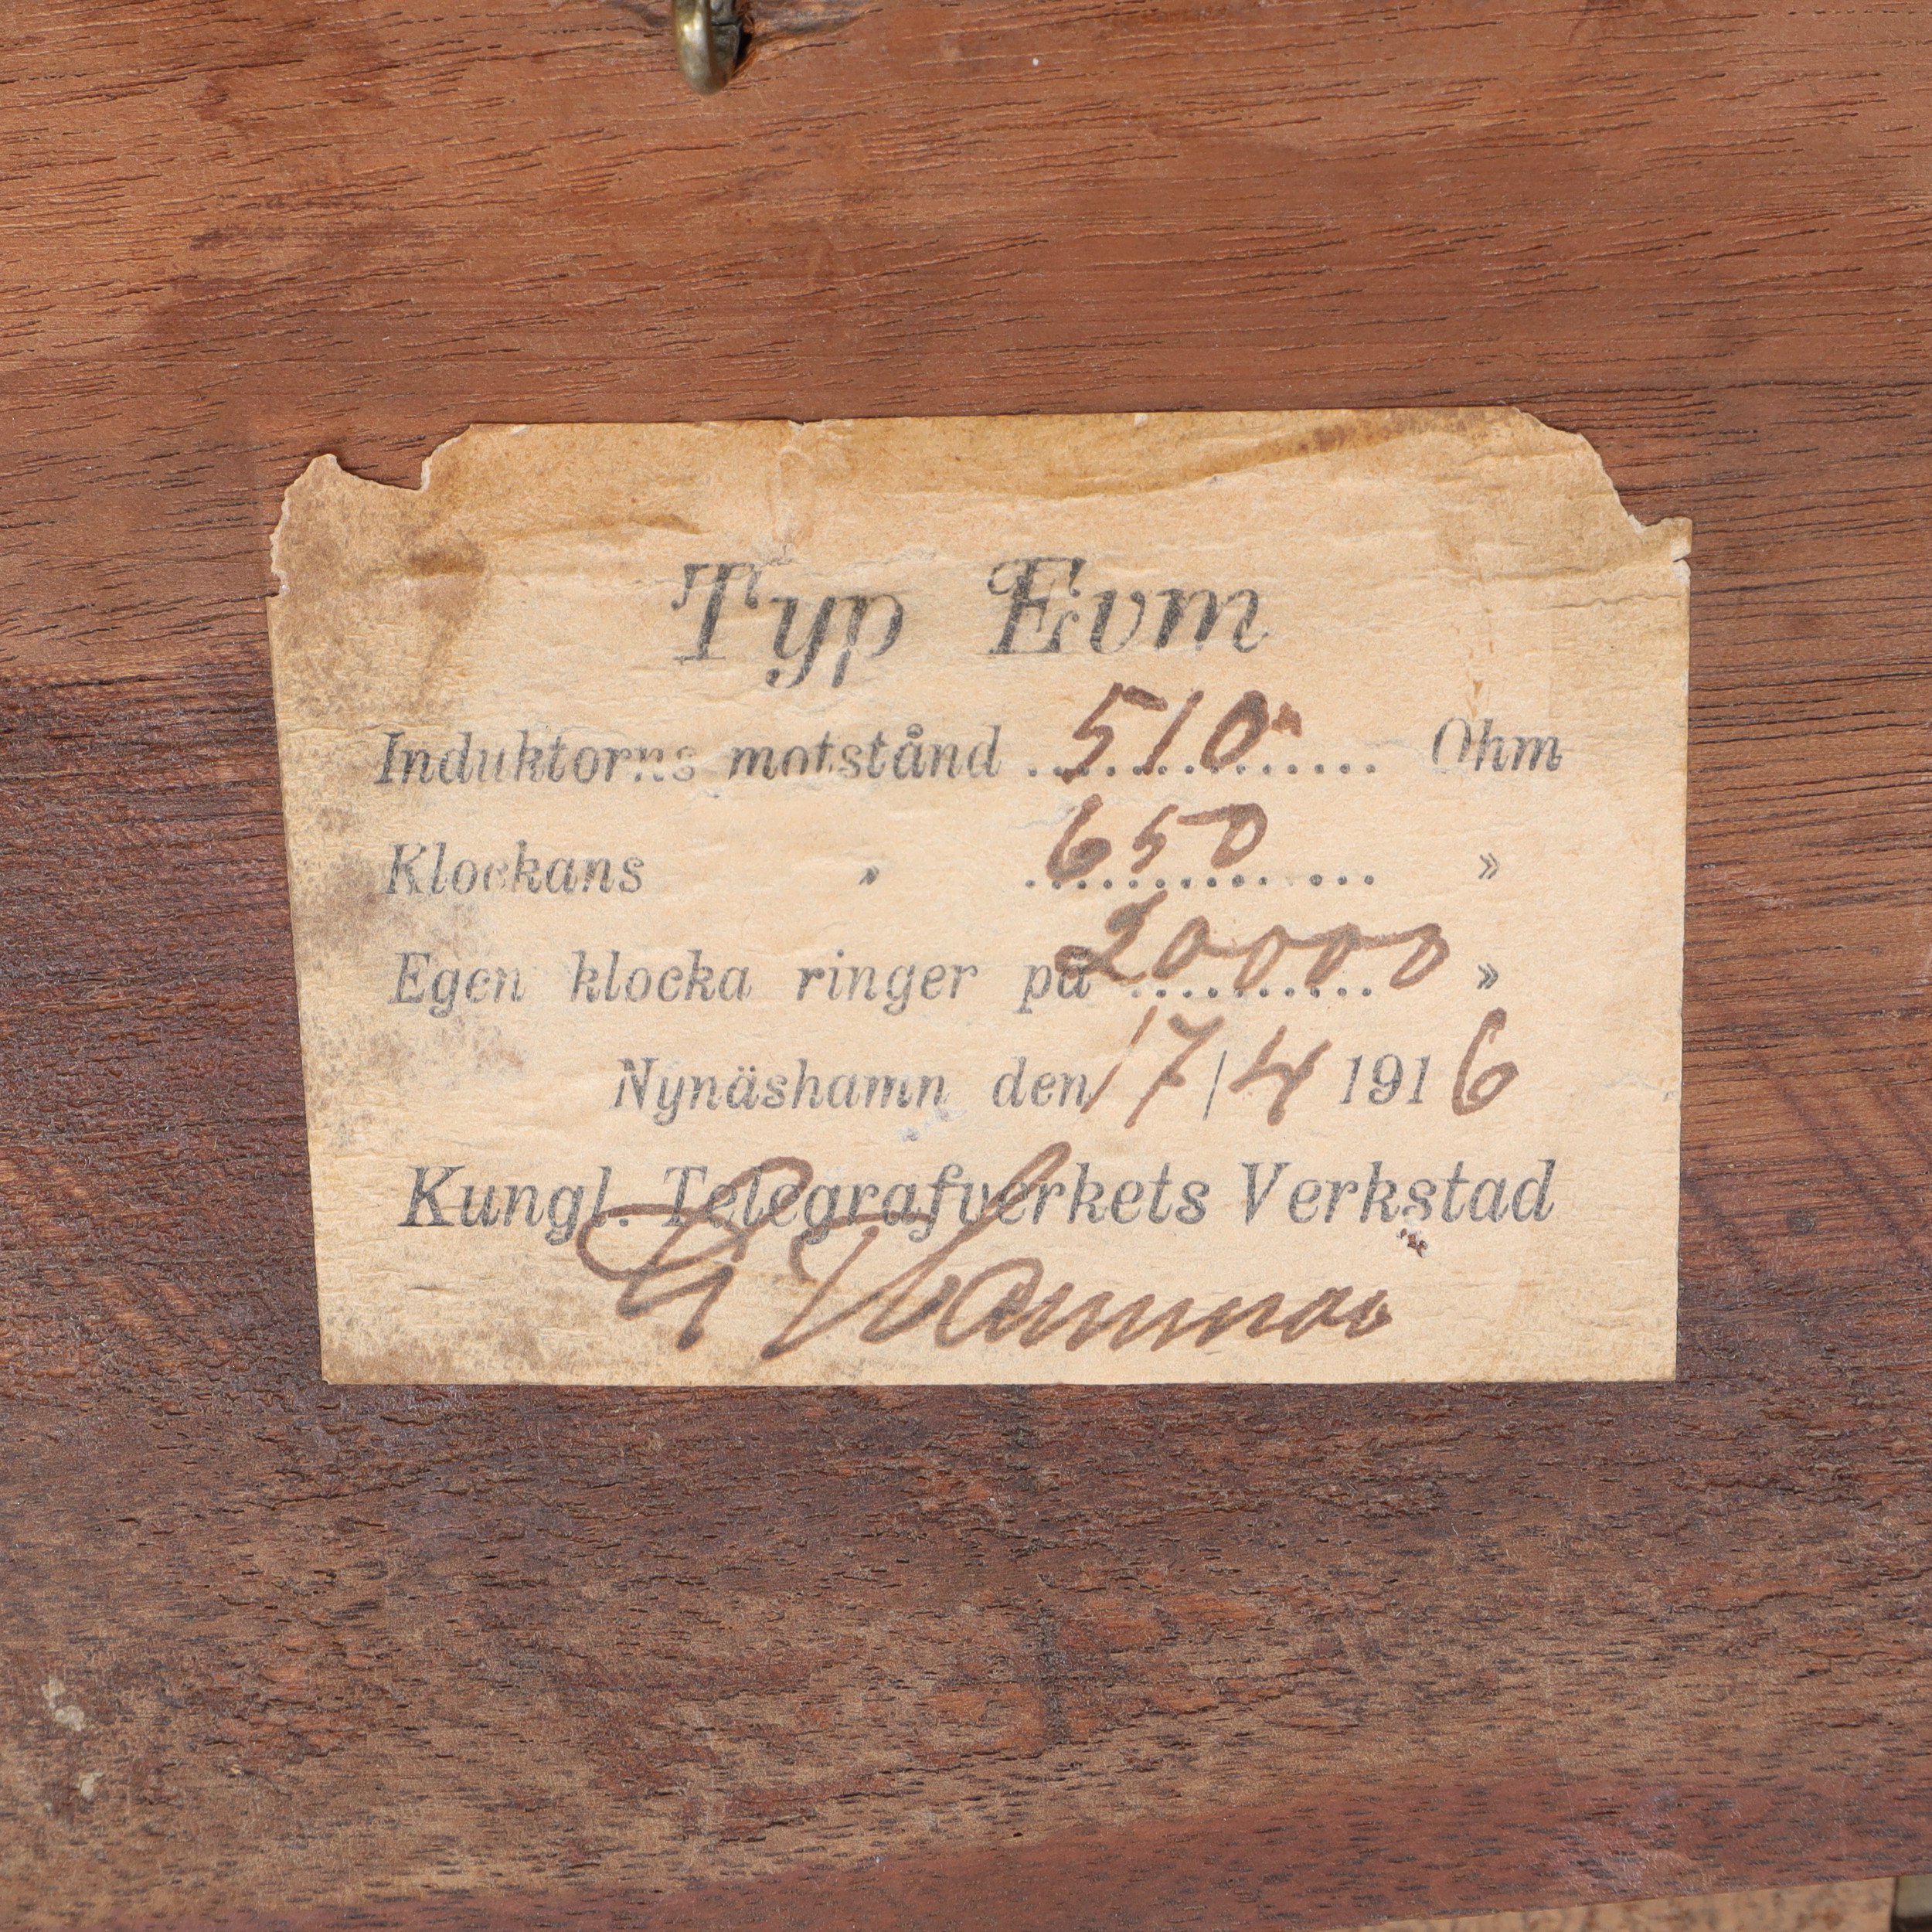 Typ Evm
Induktorns motstånd 510 Ohm
Klockans » 650 »
Egen klocka ringer på 20000 »
Nynäshamn den 17/4 1916
Kungl. Telegrafverkets Verkstad